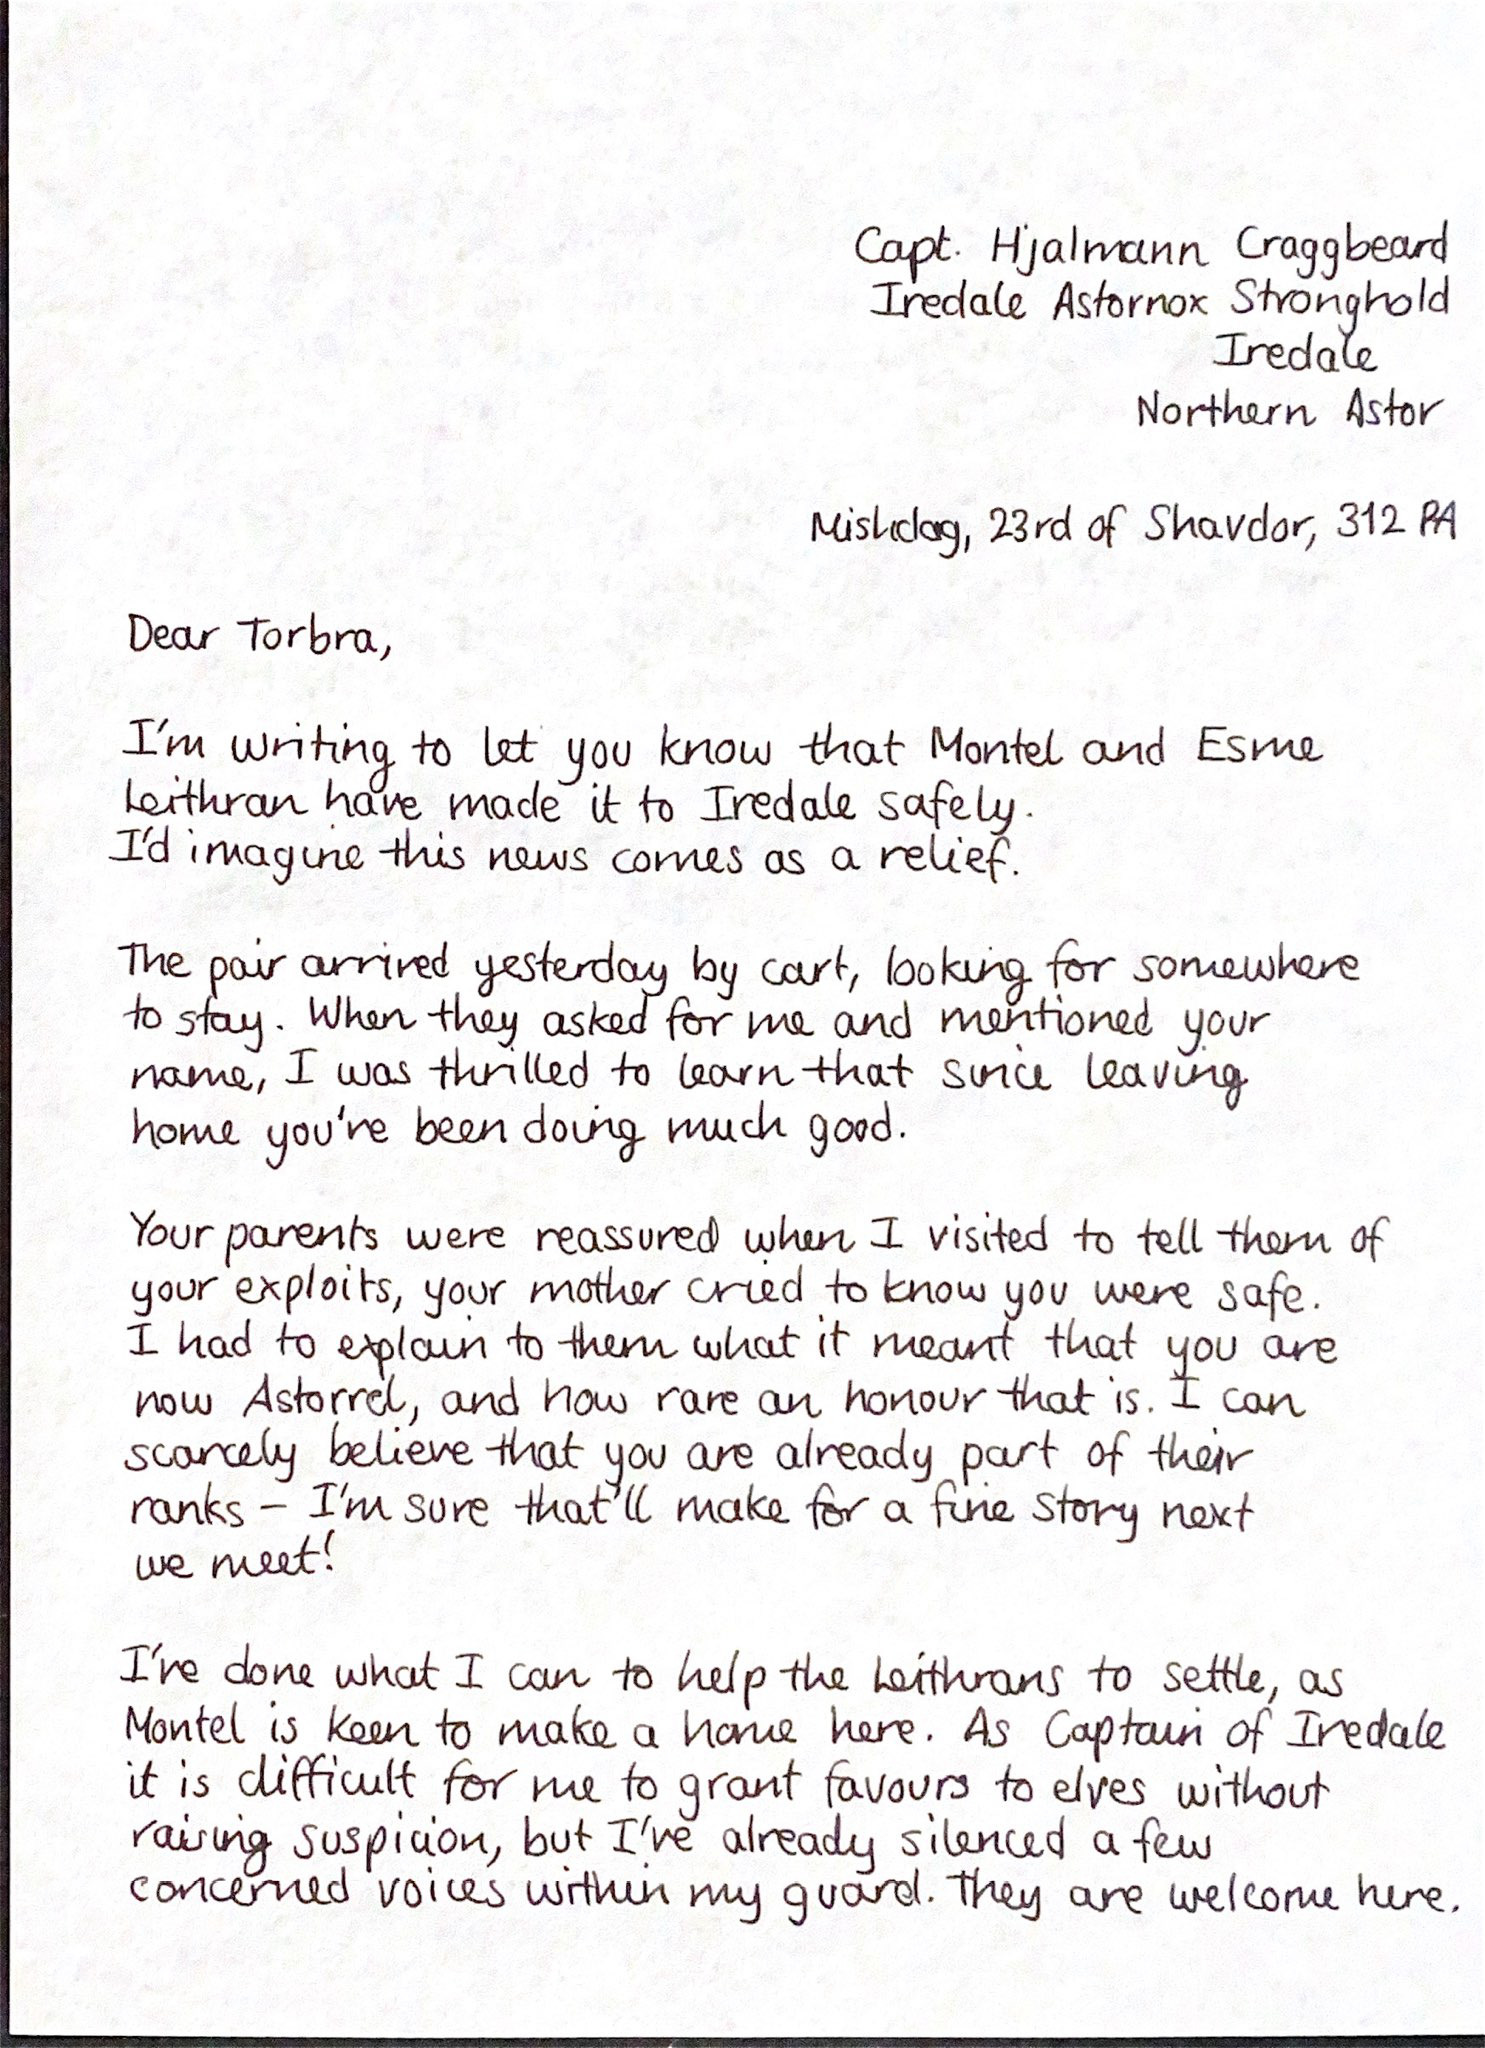 Capt. Hjalmann Craggbeard
Iredale Astornox Stronghold
Iredale
Northern Astor
23rd of Shavdor, 312 PA
Dear Torbra,
I'm writing to let you know that Montel and Esme
Leithran have made it to Iredale safely.
I'd imagine this news comes as a relief.
The pair arrived yesterday by cart, looking for somewhere
to stay. When they asked for me and mentioned your
name, I was thrilled to learn that since leaving
home you've been doing much good.
Your parents were reassured when I visited to tell them of
your exploits, your mother cried to know you were safe.
I had to explain to them what it meant that you are
now Astorrel, and how rare an honour that is. I can
scarcely believe that you are already part of their
ranks – I'm sure that'll make for a fine story next
we meet!
I've done what I can to help the Leithrans to settle, as
Montel is keen to make a home here. As Captain of Iredale
it is difficult for me to grant favours to elves without
raising suspicion, but I've already silenced a few
concerned voices within my guard. They are welcome here.